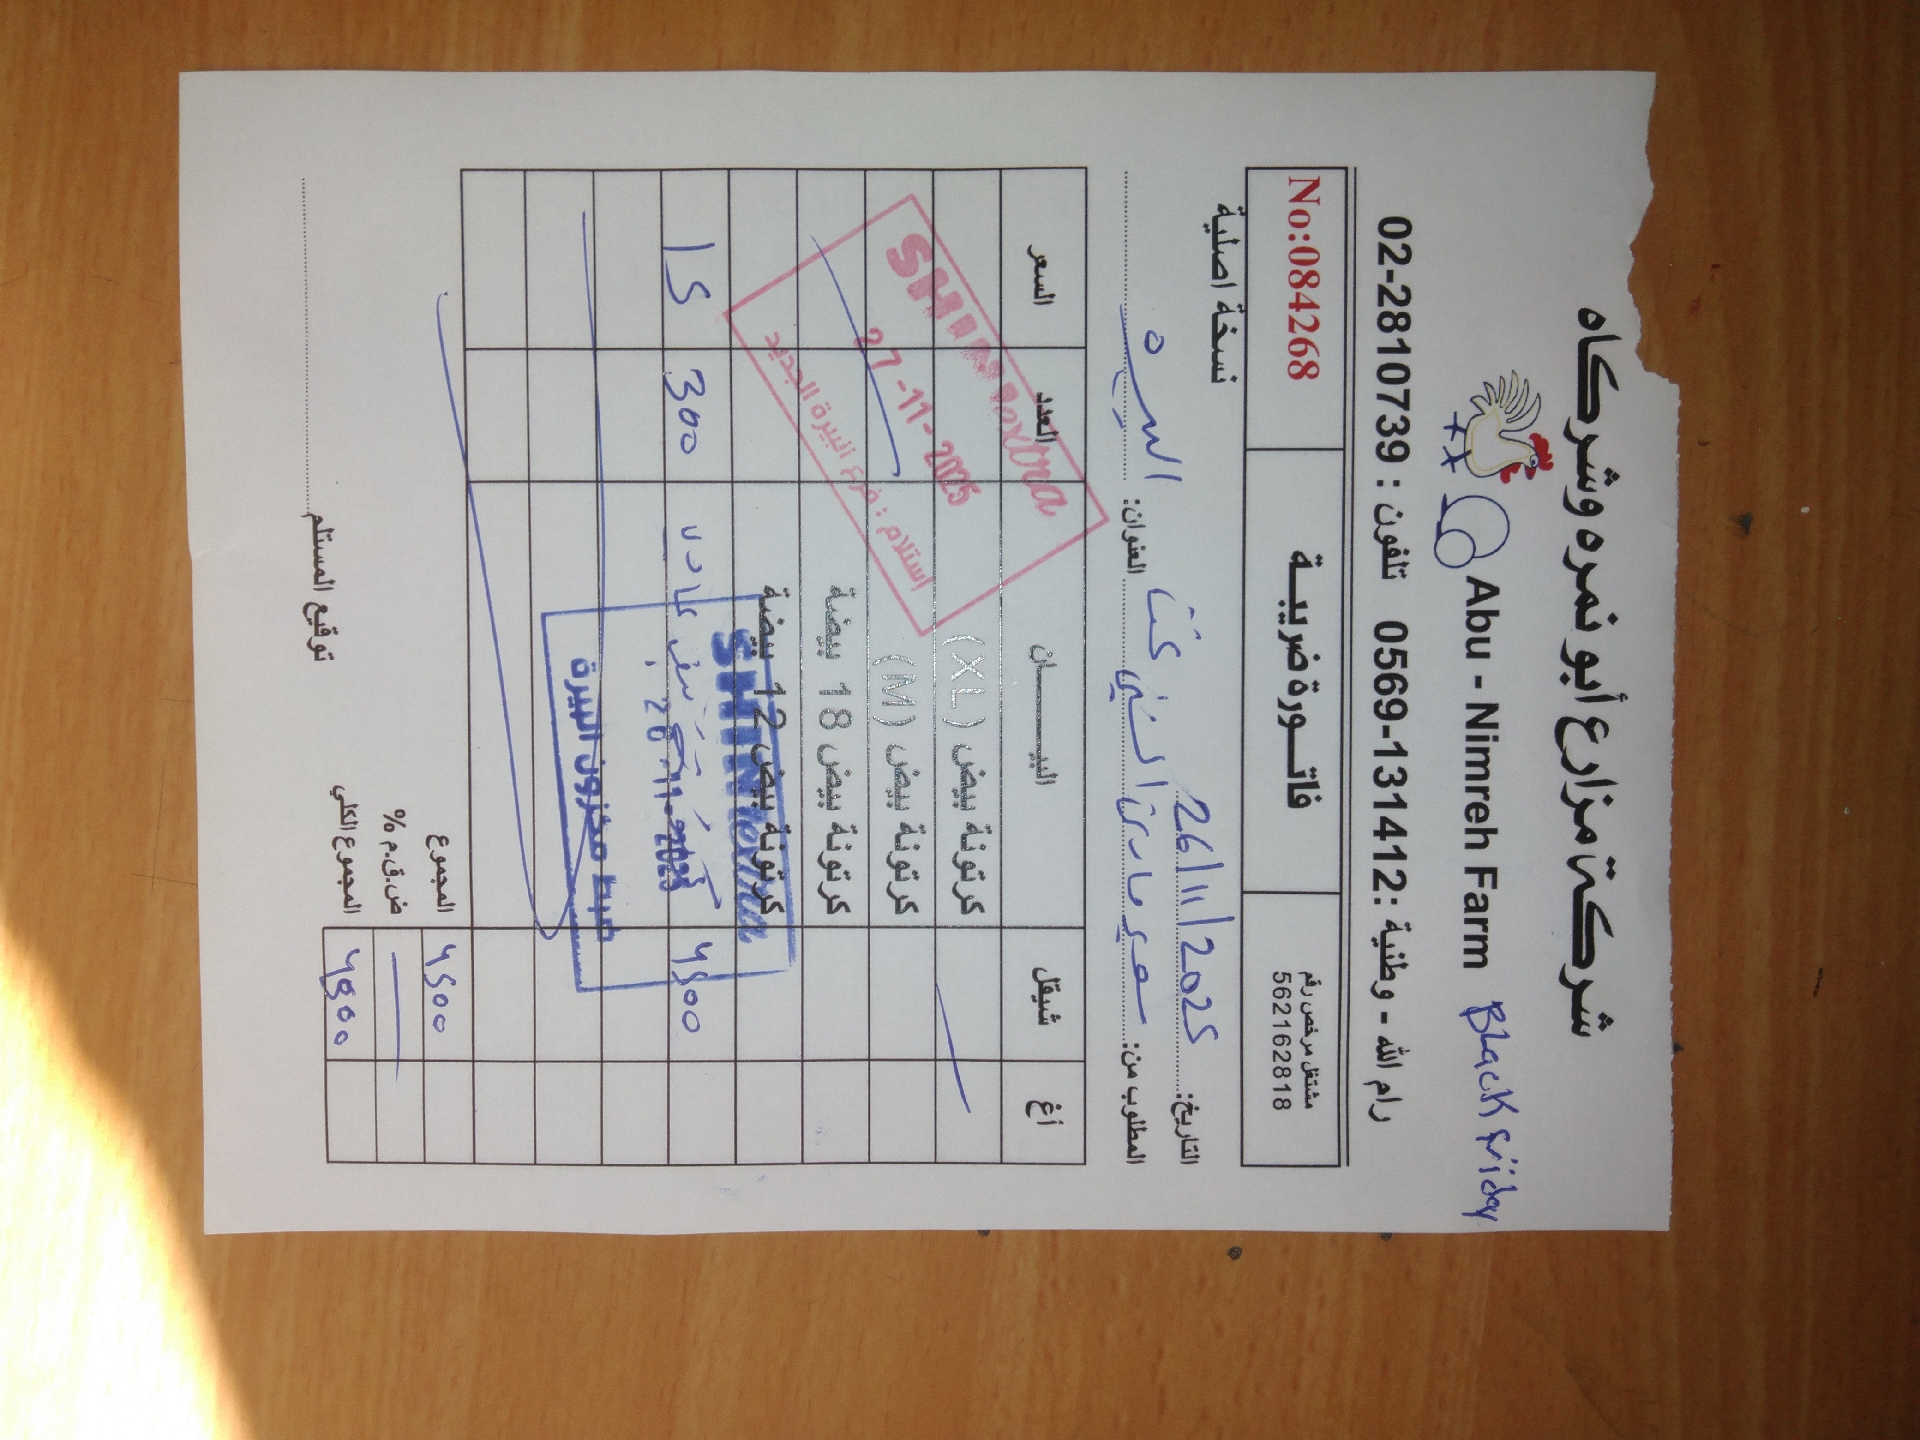 شركة مزارع أبو نمره وشركاه
Abu - Nimreh Farm
Black Friday
رام الله - وطنية : 0569-131412 تلفون : 02-2810739
مشتغل مرخص رقم
562162818
فاتـــورة ضريبـــة
No:084268
نسخة اصلية
التاريخ: 26/11/2025
المطلوب من: العنوان: البيره
أغ شيقل البيـــــــان العدد السعر
كرتونة بيض (XL)
كرتونة بيض (M)
كرتونة بيض 18 بيضة
كرتونة بيض 12 بيضة
4500 300 15
SHINI extra
27-11-2025
استلام : فرع البيرة الجديد
SHINI extra
26-11-2025
ضبط مخزون البيرة
المجموع 4500
ض.ق.م %
المجموع الكلي 4500
توقيع المستلم